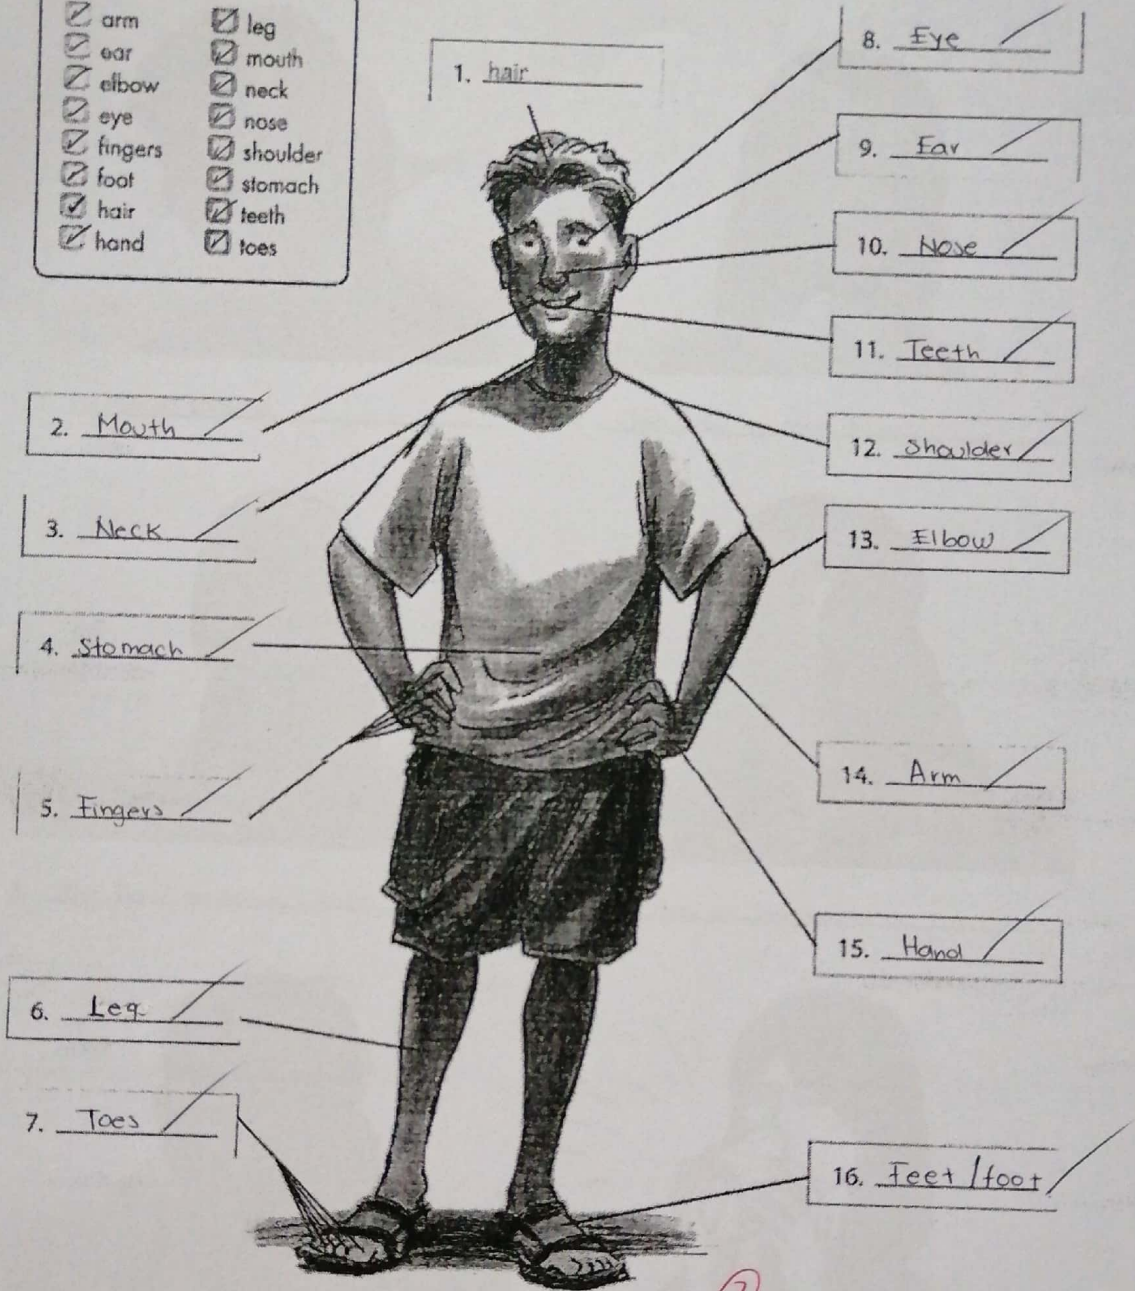 arm
ear
elbow
eye
fingers
foot
hair
hand
leg
mouth
neck
nose
shoulder
stomach
teeth
toes
1. hair
2. Mouth
3. Neck
4. Stomach
5. Fingers
6. Leg
7. Toes
8. Eye
9. Ear
10. Nose
11. Teeth
12. Shoulder
13. Elbow
14. Arm
15. Hand
16. Feet/foot